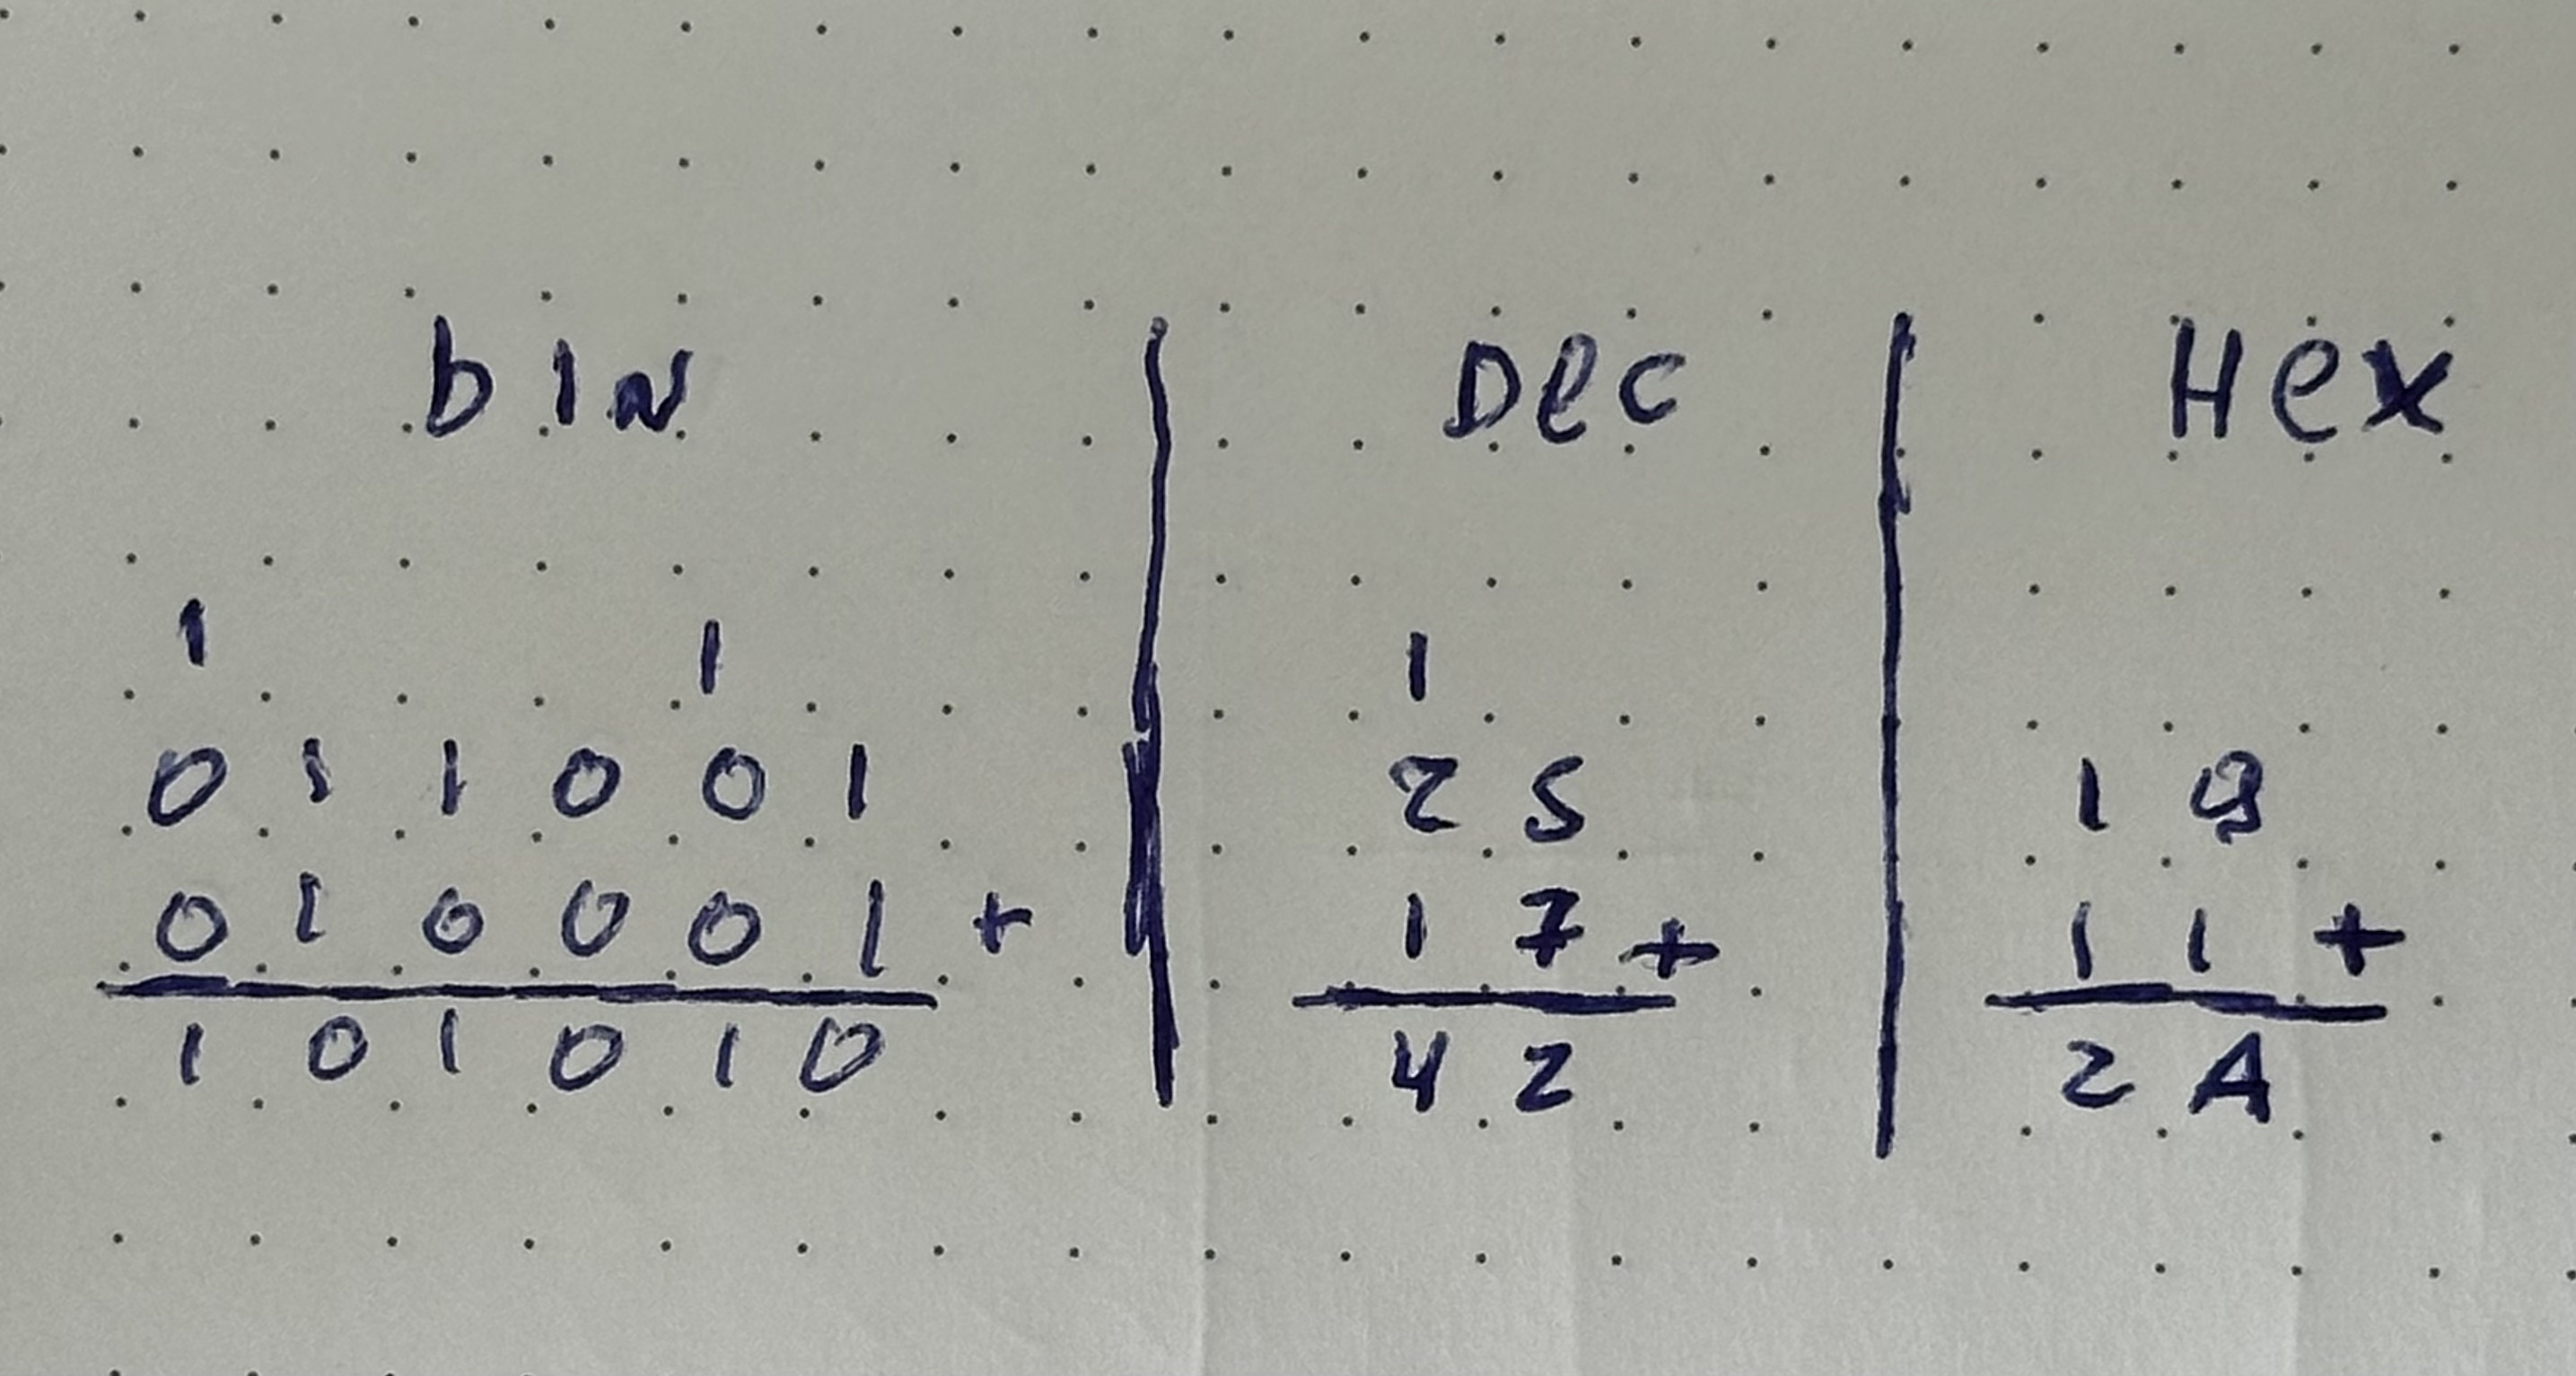 bIN | Dec | Hex
1 1 | 1 |
0 1 1 0 0 1 | 2 5 | 1 9
0 1 0 0 0 1 + | 1 7 + | 1 1 +
1 0 1 0 1 0 | 4 2 | 2 A